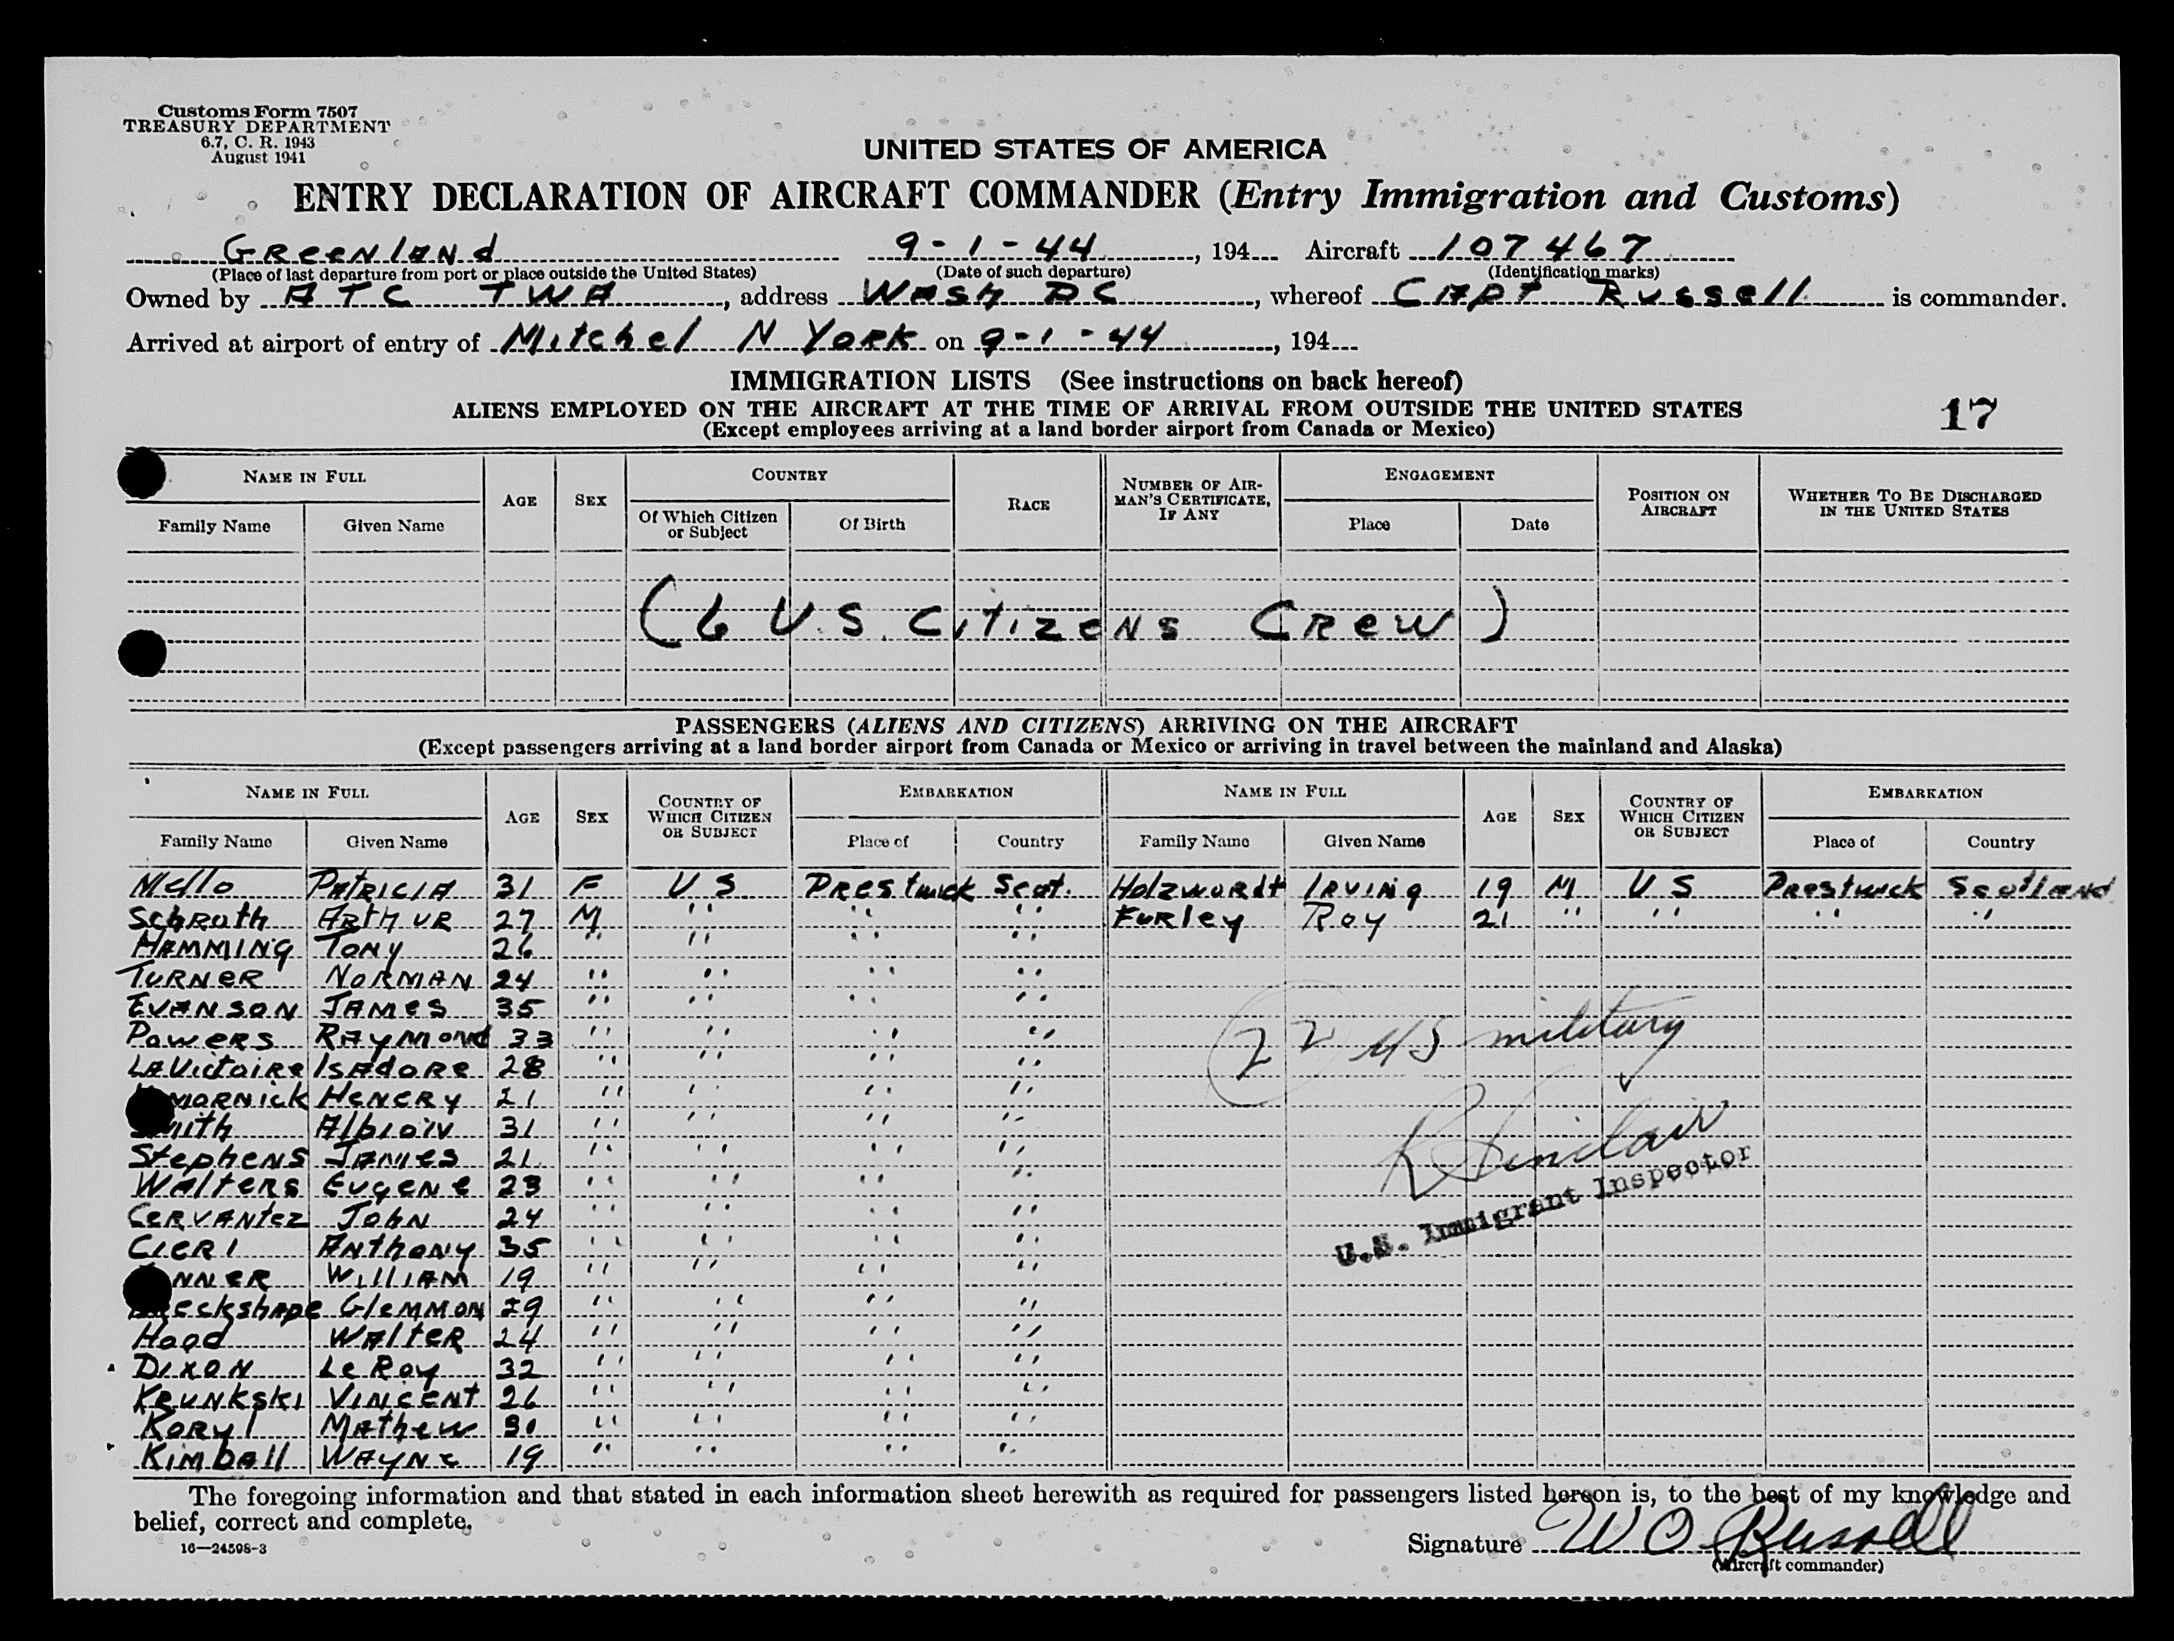 Customs Form 7507
TREASURY DEPARTMENT
6.7, C. R. 1943
August 1941
UNITED STATES OF AMERICA
ENTRY DECLARATION OF AIRCRAFT COMMANDER (Entry Immigration and Customs)
Greenland 9-1-44, 194 Aircraft 107467
(Place of last departure from port or place outside the United States) (Date of such departure) (Identification marks)
Owned by ATC TWA, address Wash DC, whereof Capt Russell is commander.
Arrived at airport of entry of Mitchel N York on 9-1-44, 194
IMMIGRATION LISTS (See instructions on back hereof)
ALIENS EMPLOYED ON THE AIRCRAFT AT THE TIME OF ARRIVAL FROM OUTSIDE THE UNITED STATES
17
(Except employees arriving at a land border airport from Canada or Mexico)
NAME IN FULL AGE SEX COUNTRY RACE NUMBER OF AIRMAN'S CERTIFICATE, IF ANY ENGAGEMENT POSITION ON AIRCRAFT WHETHER TO BE DISCHARGED IN THE UNITED STATES
Family Name Given Name Of Which Citizen or Subject Of Birth Place Date
(6 U.S. Citizens Crew)
PASSENGERS (ALIENS AND CITIZENS) ARRIVING ON THE AIRCRAFT
(Except passengers arriving at a land border airport from Canada or Mexico or arriving in travel between the mainland and Alaska)
NAME IN FULL AGE SEX COUNTRY OF WHICH CITIZEN OR SUBJECT EMBARKATION NAME IN FULL AGE SEX COUNTRY OF WHICH CITIZEN OR SUBJECT EMBARKATION
Family Name Given Name Place of Country Family Name Given Name Place of Country
Mello Patricia 31 F U S Prestwick Scot. Holzwordt Irving 19 M U S Prestwick Scotland
Schroth Arthur 27 M " " " Furley Roy 21 " " " "
Hamming Tony 26 " " " "
Turner Norman 24 " " " "
Evanson James 35 " " " "
Powers Raymond 33 " " " "
22 US military
LaVictoire Isadore 28 " " " "
Henery 21 " " " "
Smith Albion 31 " " " "
R Sinclair
Stephens James 21 " " " "
Walters Eugene 23 " " " "
U.S. Immigrant Inspector
Cervantez John 24 " " " "
Cieri Anthony 35 " " " "
William 19 " " " "
Glemmon 29 " " " "
Hood Walter 24 " " " "
Dixon LeRoy 32 " " " "
Keunkski Vincent 26 " " " "
Koryl Mathew 30 " " " "
Kimball Wayne 19 " " " "
The foregoing information and that stated in each information sheet herewith as required for passengers listed hereon is, to the best of my knowledge and
belief, correct and complete.
16—24598-3
Signature W O Russell
(Aircraft commander)